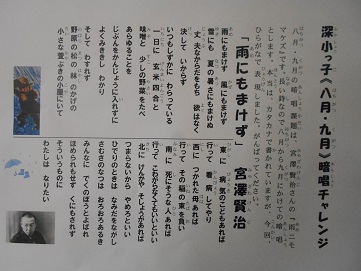 深小っ子《八月・九月》暗唱チャレンジ
八月、九月の暗唱課題は、宮沢賢治さんの「雨ニモ
マケズ」です。長い詩なので八月から九月にかけての暗唱
とします。本当は、カタカナで書かれていますが、今回
ひらがなで、表現しました。がんばってください。
「雨にもまけず」 宮澤賢治
雨にもまけず 風にもまけず
雪にも 夏の暑さにもまけぬ
丈夫なからだをもち 欲はなく
決して いからず
いつもしずかに わらっている
一日に 玄米四合と
味噌と 少しの野菜をたべ
あらゆることを
じぶんをかんじょうに入れずに
よくみききし わかり
そして わすれず
野原の松の 林の かげの
小さな萱ぶきの小屋にいて
東に 病気のこどもあれば
行って 看病してやり
西に つかれた母あれば
行って その稲の束を負い
南に 死にそうな人あれば
行って こわがらなくてもいいといい
北に けんかや そしょうがあれば
つまらないから やめろといい
ひでりのときは なみだをながし
さむさのなつは おろおろあるき
みんなに でくのぼうとよばれ
ほめられもせず くにもされず
そういうものに
わたしは なりたい